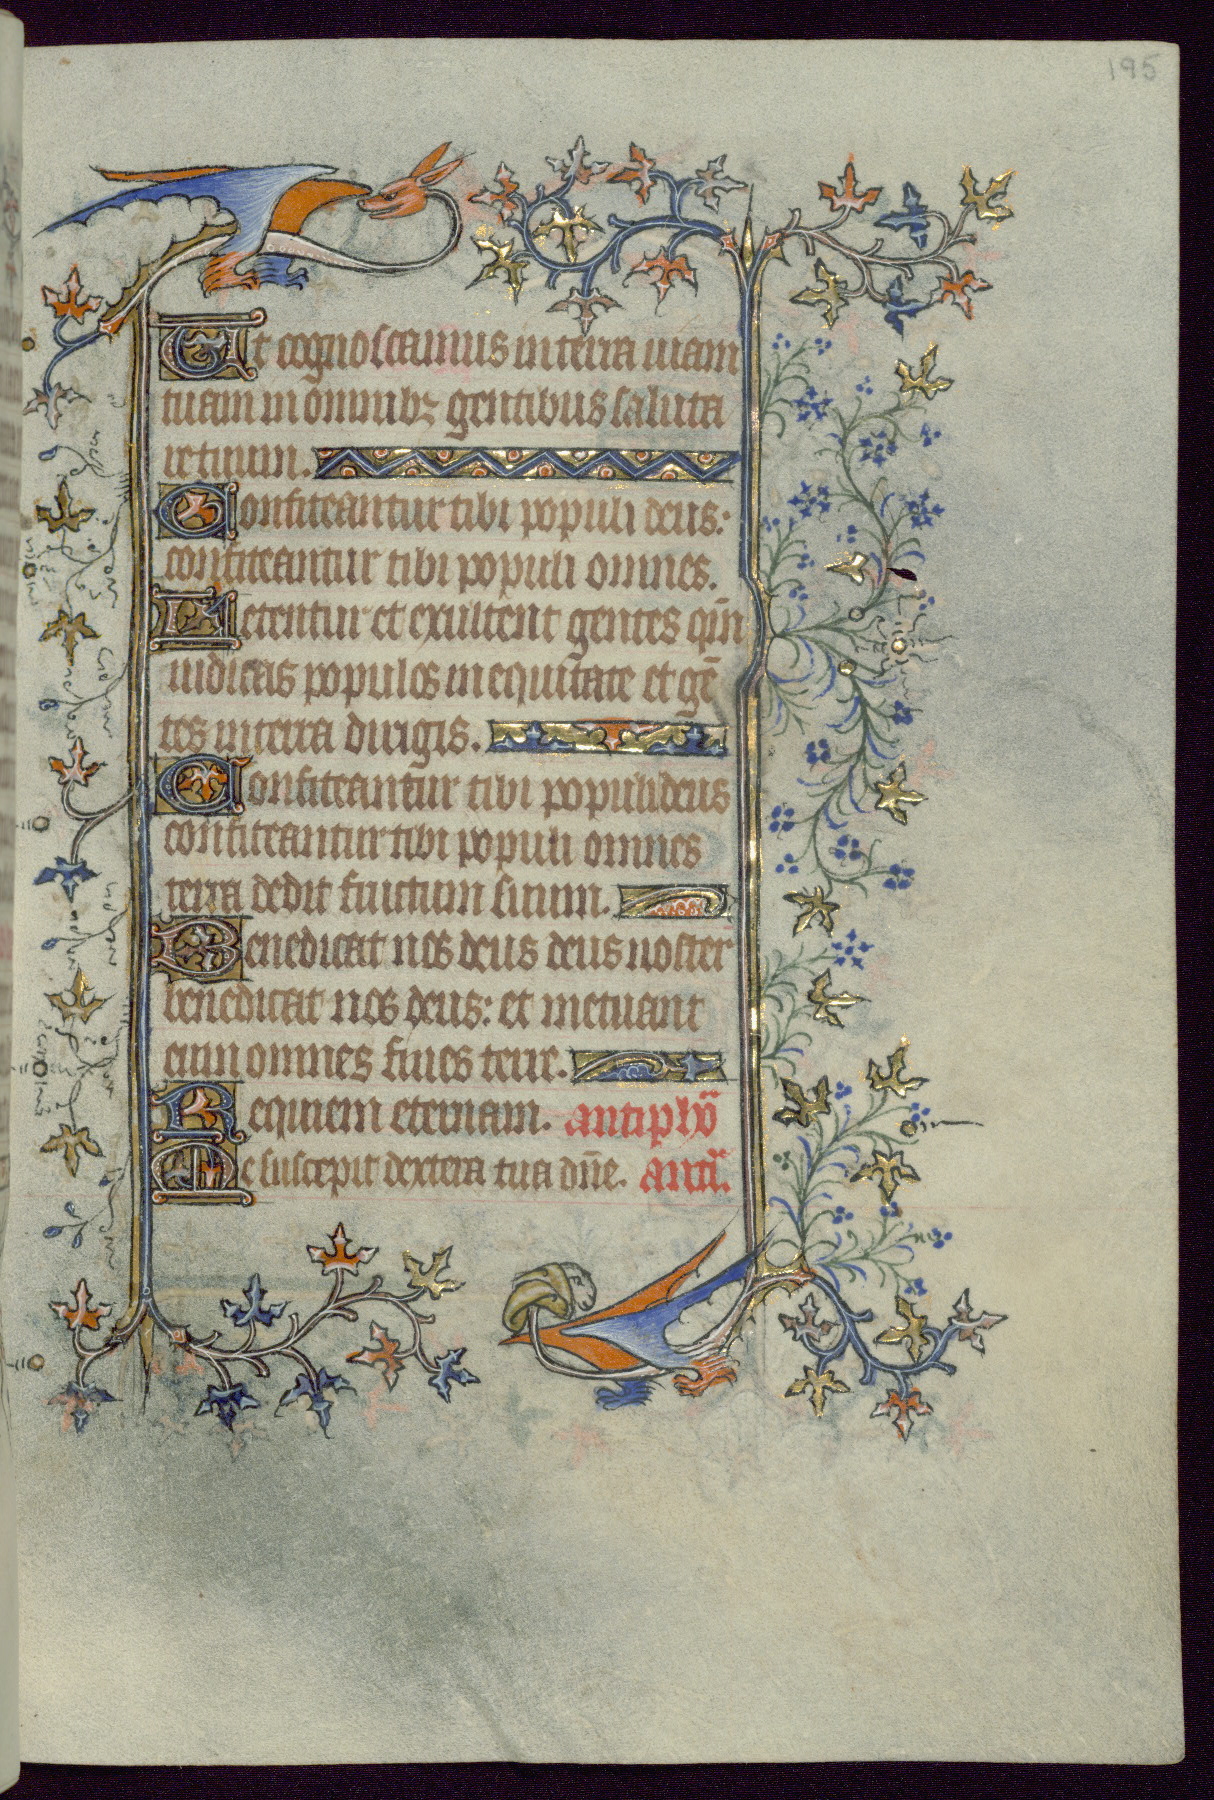 195
Ut cognoscamus in terra uiam
tuam in omnibꝫ gentibus saluta
re tuum.
Confiteantur tibi populi deus:
confiteantur tibi populi omnes.
Letentur et exultent gentes qm̄
iudicas populos in equitate et gē
tes in terra dirigis.
Confiteantur tibi populi deus
confiteantur tibi populi omnes
terra dedit fructum suum.
Benedicat nos deus deus noster
benedicat nos deus: et metuant
eum omnes fines terre.
Requiem eternam. antiph̄
Me suscepit dextera tua dn̄e. ant̄.